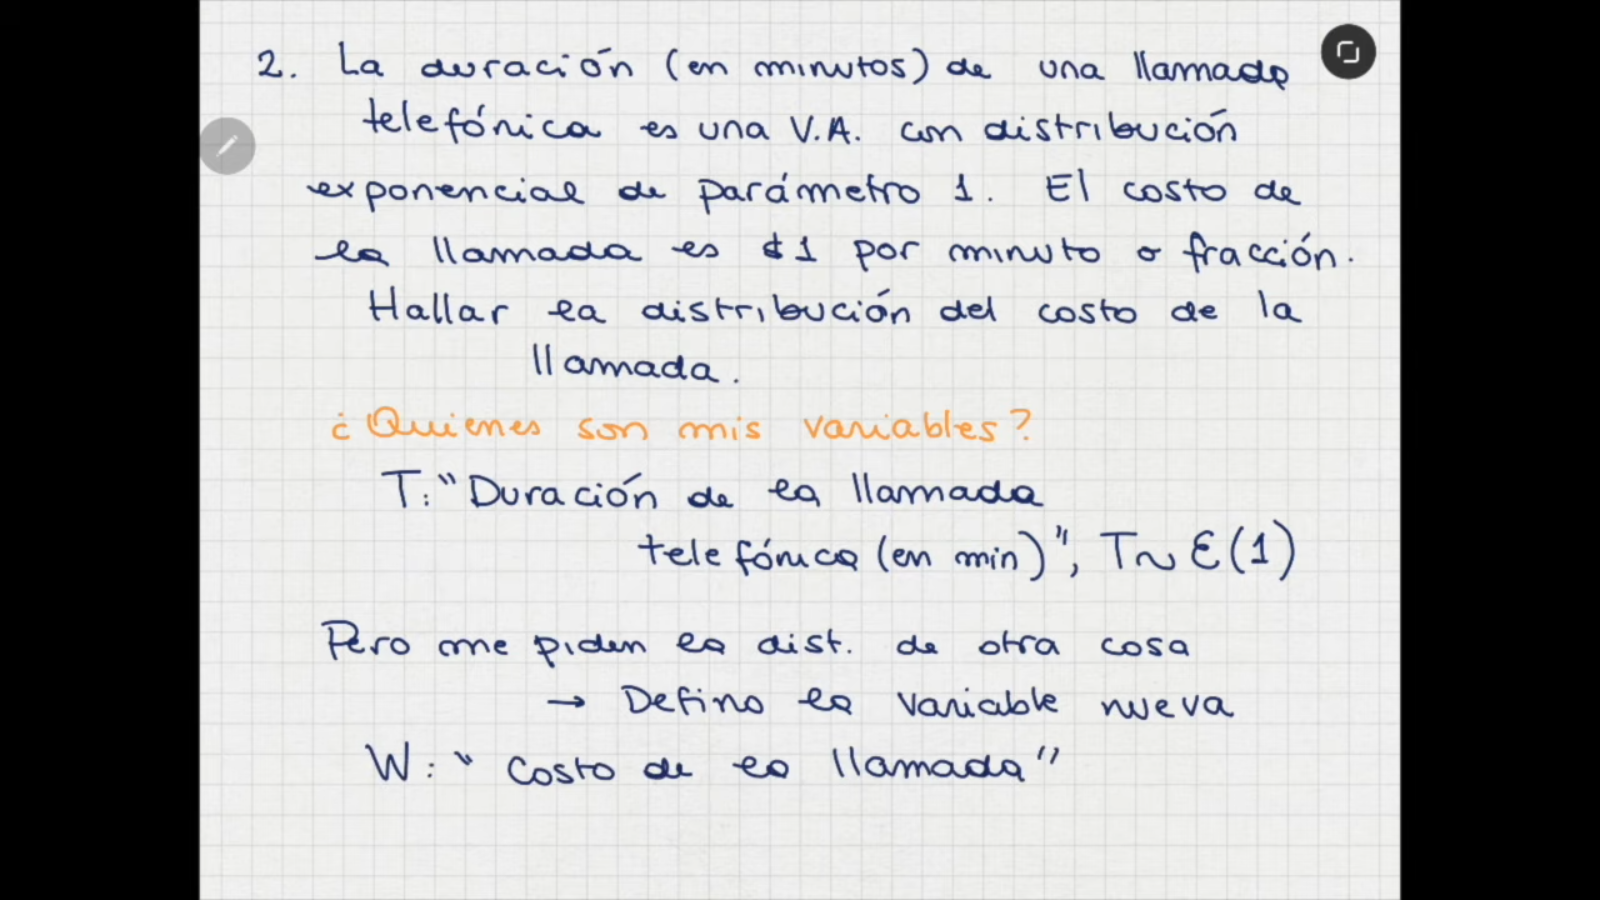 2. La duración (en minutos) de una llamada
telefónica es una V.A. con distribución
exponencial de parámetro 1. El costo de
la llamada es $1 por minuto o fracción.
Hallar la distribución del costo de la
llamada.
¿Quienes son mis variables?
T: "Duración de la llamada
telefónica (en min)", T~ε(1)
Pero me piden la dist. de otra cosa
→ Defino la variable nueva
W: "Costo de la llamada"